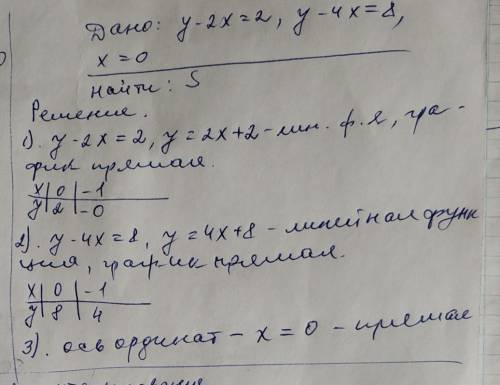 Дано: y-2x=2, y-4x=8,
x=0
Найти: S
Решение.
1). y-2x=2, y=2x+2 - лин. ф.я, гра-
фик прямая.
x | 0 | -1
y | 2 | -0
2). y-4x=8, y=4x+8 - линейная функ
ция, график прямая.
x | 0 | -1
y | 8 | 4
3). ось ординат - x=0 - прямая